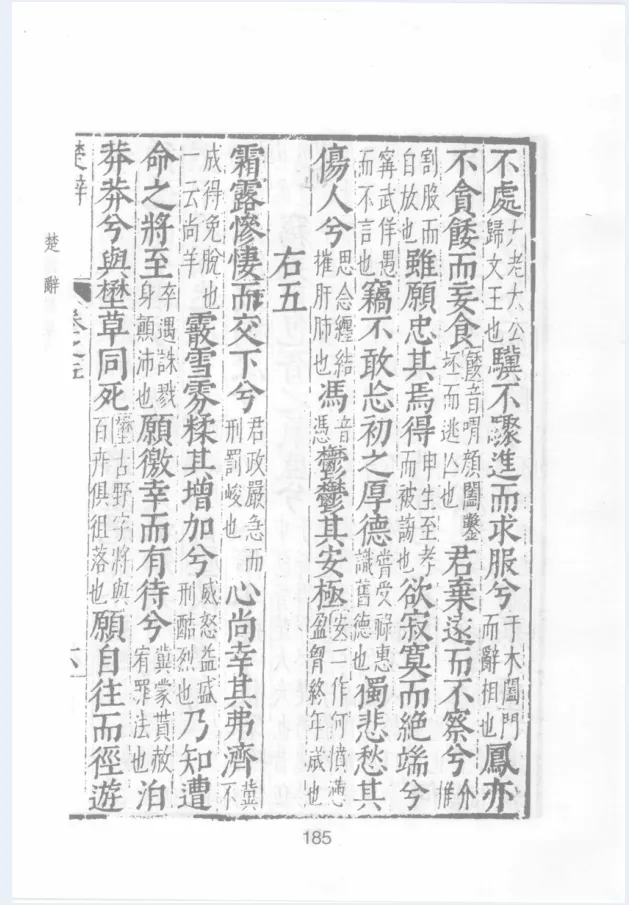 不處大老太公歸文王也驥不驟進而求服兮干木闔門而辭相也鳳亦
不貪餧而妄食餧音喟顔闔鑿坯而逃亾也君棄遠而不察兮介推
割股而自放也雖願忠其焉得申生至孝而被謗也欲寂寞而絶端兮
甯武佯愚而不言也竊不敢忘初之厚德嘗受祿惠識舊德也獨悲愁其
傷人兮思念纏結摧肝肺也馮音憑鬱鬱其安極安一作何憤懣盈胷終年歲也
右五
霜露慘悽而交下兮君政嚴急而刑罰峻也心尚幸其弗濟冀不
成得免脫也一云尚羊霰雪雰糅其增加兮威怒益盛刑酷烈也乃知遭
命之將至卒遇誅戮身顛沛也願徼幸而有待兮冀蒙貰赦宥罪法也泊
莽莽兮與壄草同死壄古野字將與百卉俱徂落也願自往而徑遊
楚辭
卷之五
六
楚辭
185